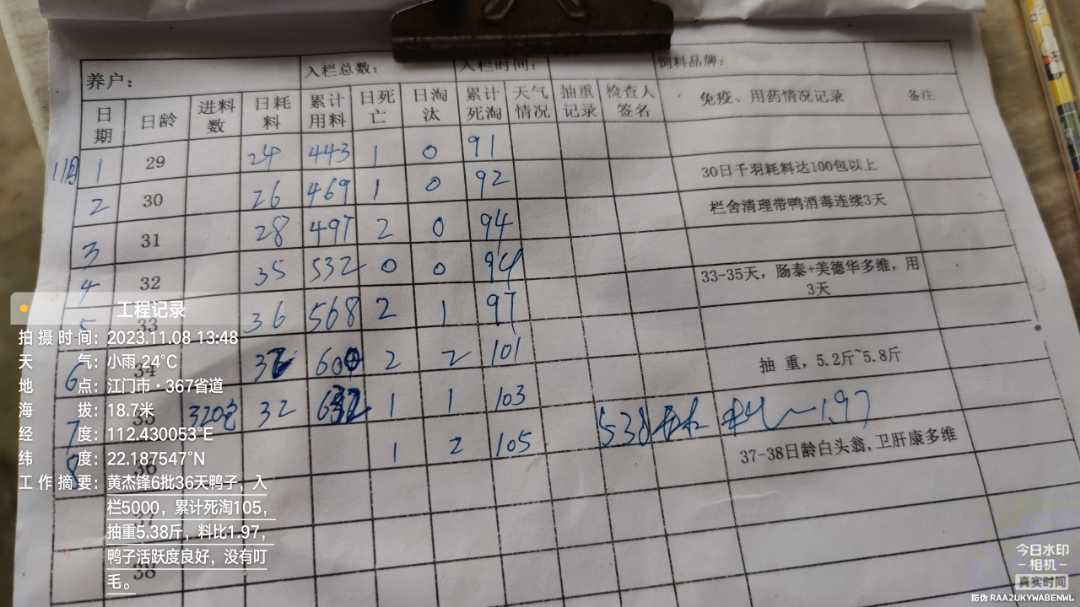 养户： 入栏总数： 入栏时间： 饲料品牌：
日期 日龄 进料数 日耗料 累计用料 日死亡 日淘汰 累计死淘 天气情况 抽重记录 检查人签名 免疫、用药情况记录 备注
11月 1 29 24 443 1 0 91
30日千羽耗料达100包以上
2 30 26 469 1 0 92
栏舍清理带鸭消毒连续3天
3 31 28 497 2 0 94
4 32 35 532 0 0 94
33-35天，肠泰+美德华多维，用
3天
5 33 36 568 2 1 97
6 34 32 600 2 2 101
抽 重，5.2斤~5.8斤
7 35 320包 32 632 1 1 103
8 36 1 2 105
5.38斤 料比 1.97
37-38日龄白头翁，卫肝康多维
37
38
工程记录
拍摄时间：2023.11.08 13:48
天 气：小雨 24°C
地 点：江门市·367省道
海 拔：18.7米
经 度：112.430053°E
纬 度：22.187547°N
工作摘要：黄杰锋6批36天鸭子，入
栏5000，累计死淘105，
抽重5.38斤，料比1.97，
鸭子活跃度良好，没有叮
毛。
今日水印
-相机-
真实时间
防伪 RAA2UKYWABENWL